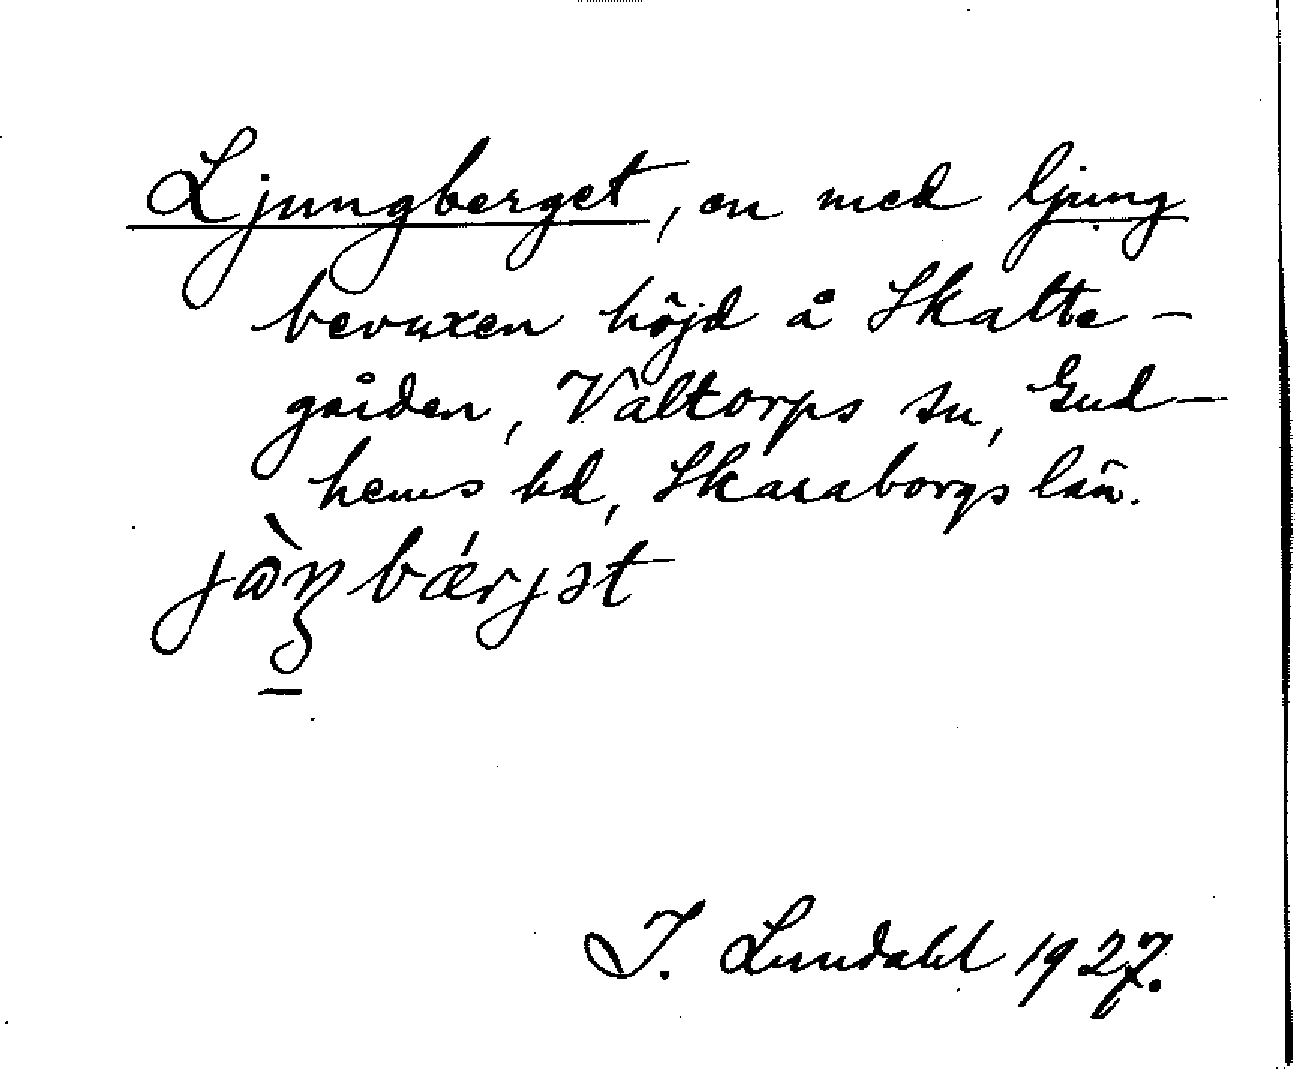 Ljungberget, en med ljung
bevuxen höjd å Skatte-
gården, Valtorps sn, Gud-
hems hd, Skaraborgs län.
jɷ̀ŋbǽrjət
I. Lundahl 1927.